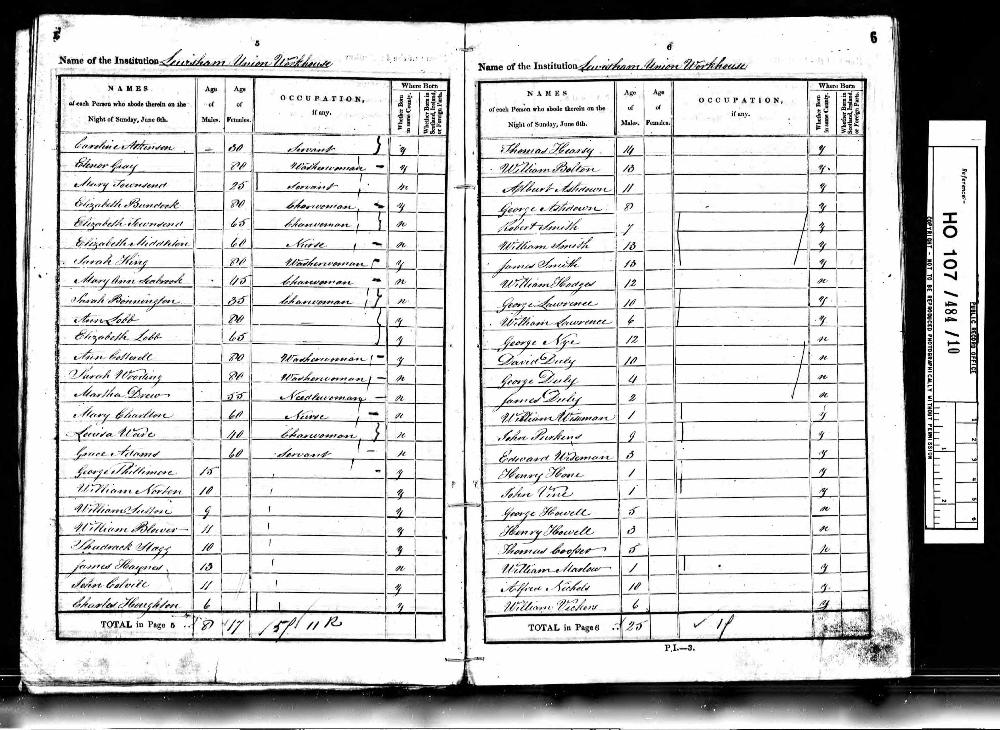 5
Name of the Institution Lewisham Union Workhouse
NAMES
of each Person who abode therein on the
Night of Sunday, June 6th.
Age of Males.
Age of Females.
OCCUPATION, if any.
Where Born
Whether Born in same County.
Whether Born in Scotland, Ireland, or Foreign Parts.
Caroline Atkinson 30 Servant y
Elenor Gray 80 Washerwoman y
Mary Townsend 25 Servant n
Elizabeth Bundock 80 Charwoman y
Elizabeth Townsend 65 Charwoman n
Elizabeth Middleton 60 Nurse n
Sarah King 80 Washerwoman y
Mary Ann Seabrook 45 Charwoman n
Sarah Bonnington 35 Charwoman n
Ann Lobb 80 y
Elizabeth Lobb 65 y
Ann 80 Washerwoman y
Sarah Wooding 80 Washerwoman n
Martha Drew 55 Needlewoman n
Mary Charlton 60 Nurse n
Louisa Ware 40 Charwoman n
Grace Adams 60 Servant n
George Phillimore 15 y
William Norton 10 y
William Sutton 9 y
William Blower 11 y
Shadrack Stagg 10 y
James Haynes 13 n
John Colvill 11 y
Charles Houghton 6 y
TOTAL in Page 5 8 17
6
6
Name of the Institution Lewisham Union Workhouse
NAMES
of each Person who abode therein on the
Night of Sunday, June 6th.
Age of Males.
Age of Females.
OCCUPATION, if any.
Where Born
Whether Born in same County.
Whether Born in Scotland, Ireland, or Foreign Parts.
Thomas 14 y
William Bolton 13 y
Ashdown 11 y
George Ashdown 8 y
Robert Smith 7 y
William Smith 13 y
James Smith 13 y
William Hodges 12 n
George Lawrence 10 y
William Lawrence 6 y
George Nye 12 n
David Duly 10 n
George Duly 4 n
James Duly 2 n
William Wiseman 1 y
John Perkins 9 y
Edward Wiseman 3 y
Henry Hone 1 y
John Vine 1 y
George Howell 5 n
Henry Howell 3 n
Thomas Cooper 5 n
William Marlow 1 y
Alfred Nichols 10 y
William Vickers 6 y
TOTAL in Page 6 25
P.I.—3.
Reference:-
HO 107/484/10
PUBLIC RECORD OFFICE
COPYRIGHT - NOT TO BE REPRODUCED PHOTOGRAPHICALLY WITHOUT PERMISSION